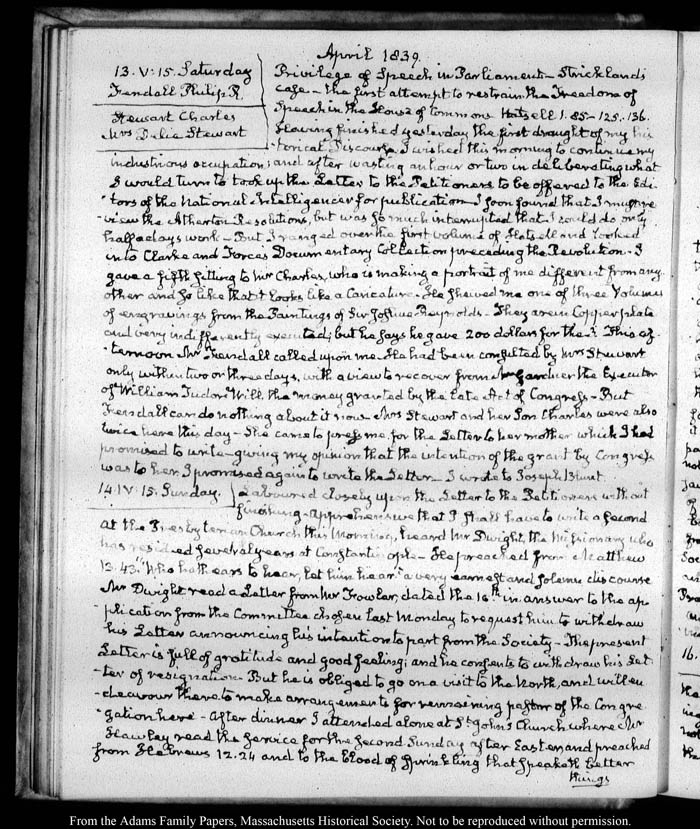 April 1839.
13. V: 15. Saturday
Kendall Philip R.
Stewart Charles
Mrs Delia Stewart
Privilege of Speech in Parliament — Stricklands
case — the first attempt to restrain the Freedom of
Speech in the House of Commons Hatsell 1. 85-125. 136.
Having finished yesterday the first draught of my his
-torical Discourse, I wished this morning to continue my
industrious occupation; and after wasting an hour or two in deliberating what
I would turn to took up the Letter to the Petitioners to be offered to the Edi
-tors of the National Intelligencer for publication — I soon found that I must re
-view the Atherton Resolutions, but was so much interrupted that I could do only
half a days work — But I ranged over the first volume of Hatsell and looked
into Clarke and Forces Documentary Collection preceding the Revolution. I
gave a fifth sitting to Mr Charles, who is making a portrait of me different from any
other and so like that it looks like a Caricature. He shewed me one of three Volumes
of engravings from the Paintings of Sir Joshua Reynolds — They are in Copper plate
and very indifferently executed; but he says he gave 200 dollars for the 3. This af
-ternoon Mr Kendall called upon me. He had been consulted by Mrs Stewart
only within two or three days, with a view to recover from Mr Gardner the Executor
of William Tudor's Will, the money granted by the late Act of Congress — But
Kendall can do nothing about it now. Mrs Stewart and her Son Charles were also
twice here this day — She came to press me, for the Letter to her mother which I had
promised to write — giving my opinion that the intention of the grant by Congress
was to her. I promised again to write the Letter — I wrote to Joseph Blunt.
14. IV: 15. Sunday.
Laboured closely upon the Letter to the Petitioners without
finishing — apprehensive that I shall have to write a second
At the Presbyterian Church this Morning, heard Mr Dwight, the Missionary who
has resided several years at Constantinople — He preached from Matthew
13. 43. "Who hath ears to hear, let him hear." a very earnest and solemn discourse
Mr Dwight read a Letter from Mr Fowler, dated the 10th in answer to the ap
-plication from the Committee chosen last Monday to request him to withdraw
his Letter announcing his intention to part from the Society — The present
Letter is full of gratitude and good feeling; and he consents to withdraw his Let
-ter of resignation. But he is obliged to go on a visit to the North, and will en
-deavour there to make arrangements for remaining pastor of the Congre
-gation here — After dinner I attended alone at St John's Church where Mr
Hawley read the Service for the Second Sunday after Easter, and preached
from Hebrews 12. 24 and to the blood of Sprinkling that speaketh better
things
From the Adams Family Papers, Massachusetts Historical Society. Not to be reproduced without permission.